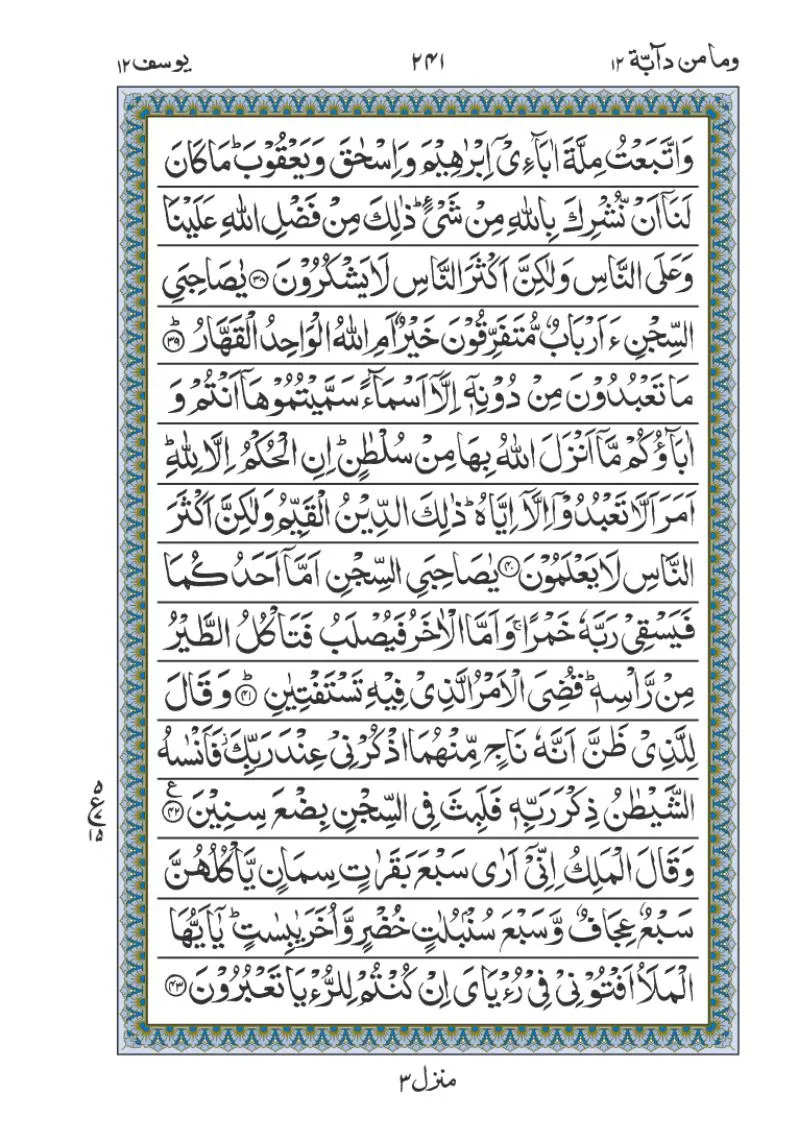 وما من دآبّة ١٢ ٢٤١ يوسف ١٢
وَاتَّبَعْتُ مِلَّةَ اٰبَآءِىْٓ اِبْرٰهِيْمَ وَاِسْحٰقَ وَيَعْقُوْبَ ؕ مَا كَانَ
لَنَاۤ اَنْ نُّشْرِكَ بِاللّٰهِ مِنْ شَىْءٍ ؕ ذٰلِكَ مِنْ فَضْلِ اللّٰهِ عَلَيْنَا
وَعَلَى النَّاسِ وَلٰكِنَّ اَكْثَرَ النَّاسِ لَا يَشْكُرُوْنَ ﴿۳۸﴾ يٰصَاحِبَىِ
السِّجْنِ ءَاَرْبَابٌ مُّتَفَرِّقُوْنَ خَيْرٌ اَمِ اللّٰهُ الْوَاحِدُ الْقَهَّارُ ؕ ﴿۳۹﴾
مَا تَعْبُدُوْنَ مِنْ دُوْنِهٖۤ اِلَّاۤ اَسْمَآءً سَمَّيْتُمُوْهَاۤ اَنْتُمْ وَ
اٰبَآؤُكُمْ مَّاۤ اَنْزَلَ اللّٰهُ بِهَا مِنْ سُلْطٰنٍ ؕ اِنِ الْحُكْمُ اِلَّا لِلّٰهِ ؕ
اَمَرَ اَلَّا تَعْبُدُوْۤا اِلَّاۤ اِيَّاهُ ؕ ذٰلِكَ الدِّيْنُ الْقَيِّمُ وَلٰكِنَّ اَكْثَرَ
النَّاسِ لَا يَعْلَمُوْنَ ﴿۴۰﴾ يٰصَاحِبَىِ السِّجْنِ اَمَّاۤ اَحَدُكُمَا
فَيَسْقِىْ رَبَّهٗ خَمْرًا ۚ وَاَمَّا الْاٰخَرُ فَيُصْلَبُ فَتَاْكُلُ الطَّيْرُ
مِنْ رَّاْسِهٖ ؕ قُضِىَ الْاَمْرُ الَّذِىْ فِيْهِ تَسْتَفْتِيٰنِ ؕ ﴿۴۱﴾ وَقَالَ
لِلَّذِىْ ظَنَّ اَنَّهٗ نَاجٍ مِّنْهُمَا اذْكُرْنِىْ عِنْدَ رَبِّكَ فَاَنْسٰىهُ
الشَّيْطٰنُ ذِكْرَ رَبِّهٖ فَلَبِثَ فِى السِّجْنِ بِضْعَ سِنِيْنَ ﴿۴۲﴾ ع
۵ ع ۱۵
وَقَالَ الْمَلِكُ اِنِّىْۤ اَرٰى سَبْعَ بَقَرٰتٍ سِمَانٍ يَّاْكُلُهُنَّ
سَبْعٌ عِجَافٌ وَّسَبْعَ سُنْۢبُلٰتٍ خُضْرٍ وَّاُخَرَ يٰبِسٰتٍ ؕ يٰۤاَيُّهَا
الْمَلَاُ اَفْتُوْنِىْ فِىْ رُءْيَاىَ اِنْ كُنْتُمْ لِلرُّءْيَا تَعْبُرُوْنَ ﴿۴۳﴾
منزل ۳